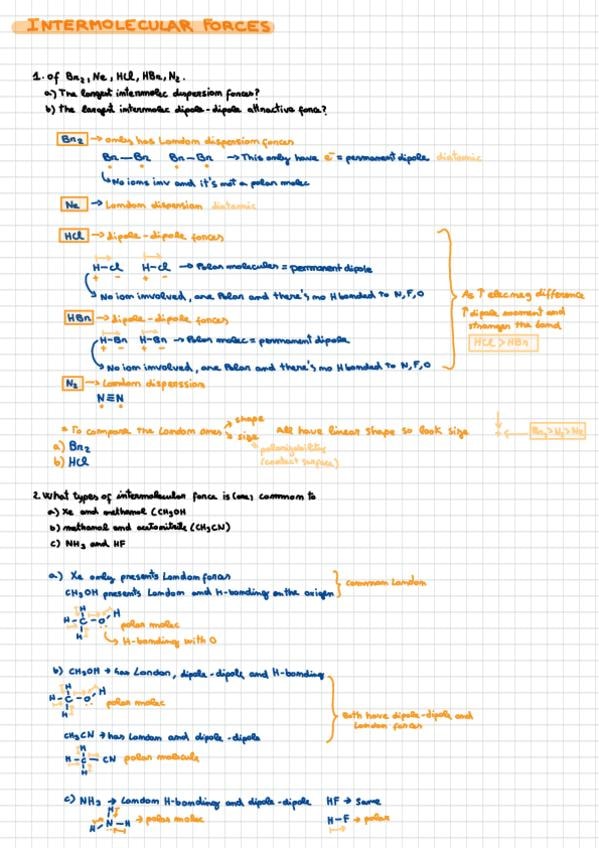 INTERMOLECULAR FORCES
1. of Br2, Ne, HCl, HBr, N2.
a) The largest intermolec dispersion forces?
b) the largest intermolec dipole-dipole attractive force?
Br2 → only has London dispersion forces
Br—Br Br—Br → This only have e⁻ = permanent dipole diatomic
No ions inv and it's not a polar molec
Ne → London dispersion diatomic
HCl → dipole-dipole forces
H-Cl H-Cl → Polar molecules = permanent dipole
+ - + -
No ion involved, are Polar and there's no H bonded to N, F, O
As ↑ elecneg difference
↑ dipole moment and
stronger the bond
HCl > HBr
HBr → dipole-dipole forces
H-Br H-Br → Polar molec = permanent dipole
+ - + -
No ion involved, are Polar and there's no H bonded to N, F, O
N2 → London disperssion
N≡N
= To compare the London ones shape size All have linear shape so look size
polarizability
(contact surface)
Br2 > N2 > Ne
a) Br2
b) HCl
2. What types of intermolecular force is (are) common to
a) Xe and methanol (CH3OH
b) methanol and acetonitrile (CH3CN)
c) NH3 and HF
a) Xe only presents London forces
CH3OH presents London and H-bonding on the oxigen
common London
H
H-C-O-H
H
polar molec
H-bonding with O
b) CH3OH → has London, dipole-dipole and H-bonding
H
H-C-O-H
H
polar molec
Both have dipole-dipole and
London forces
CH3CN → has London and dipole-dipole
H
H-C-CN polar molecule
H
c) NH3 → London H-bonding and dipole-dipole HF → same
H
H-N-H → polar molec H-F → polar